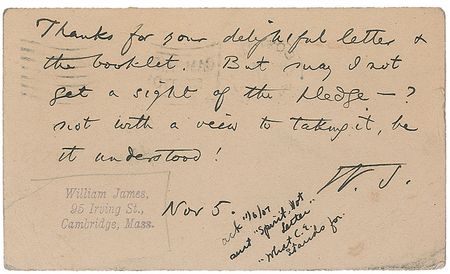 Thanks for your delightful letter &
the booklet. But may I not
get a sight of the pledge — ?
not with a view to taking it, be
it understood!
W. J.
William James,
95 Irving St.,
Cambridge, Mass.
Nov 5.
ack 11/6/07
"Spirit.
letter
"What C.E.
stands for.